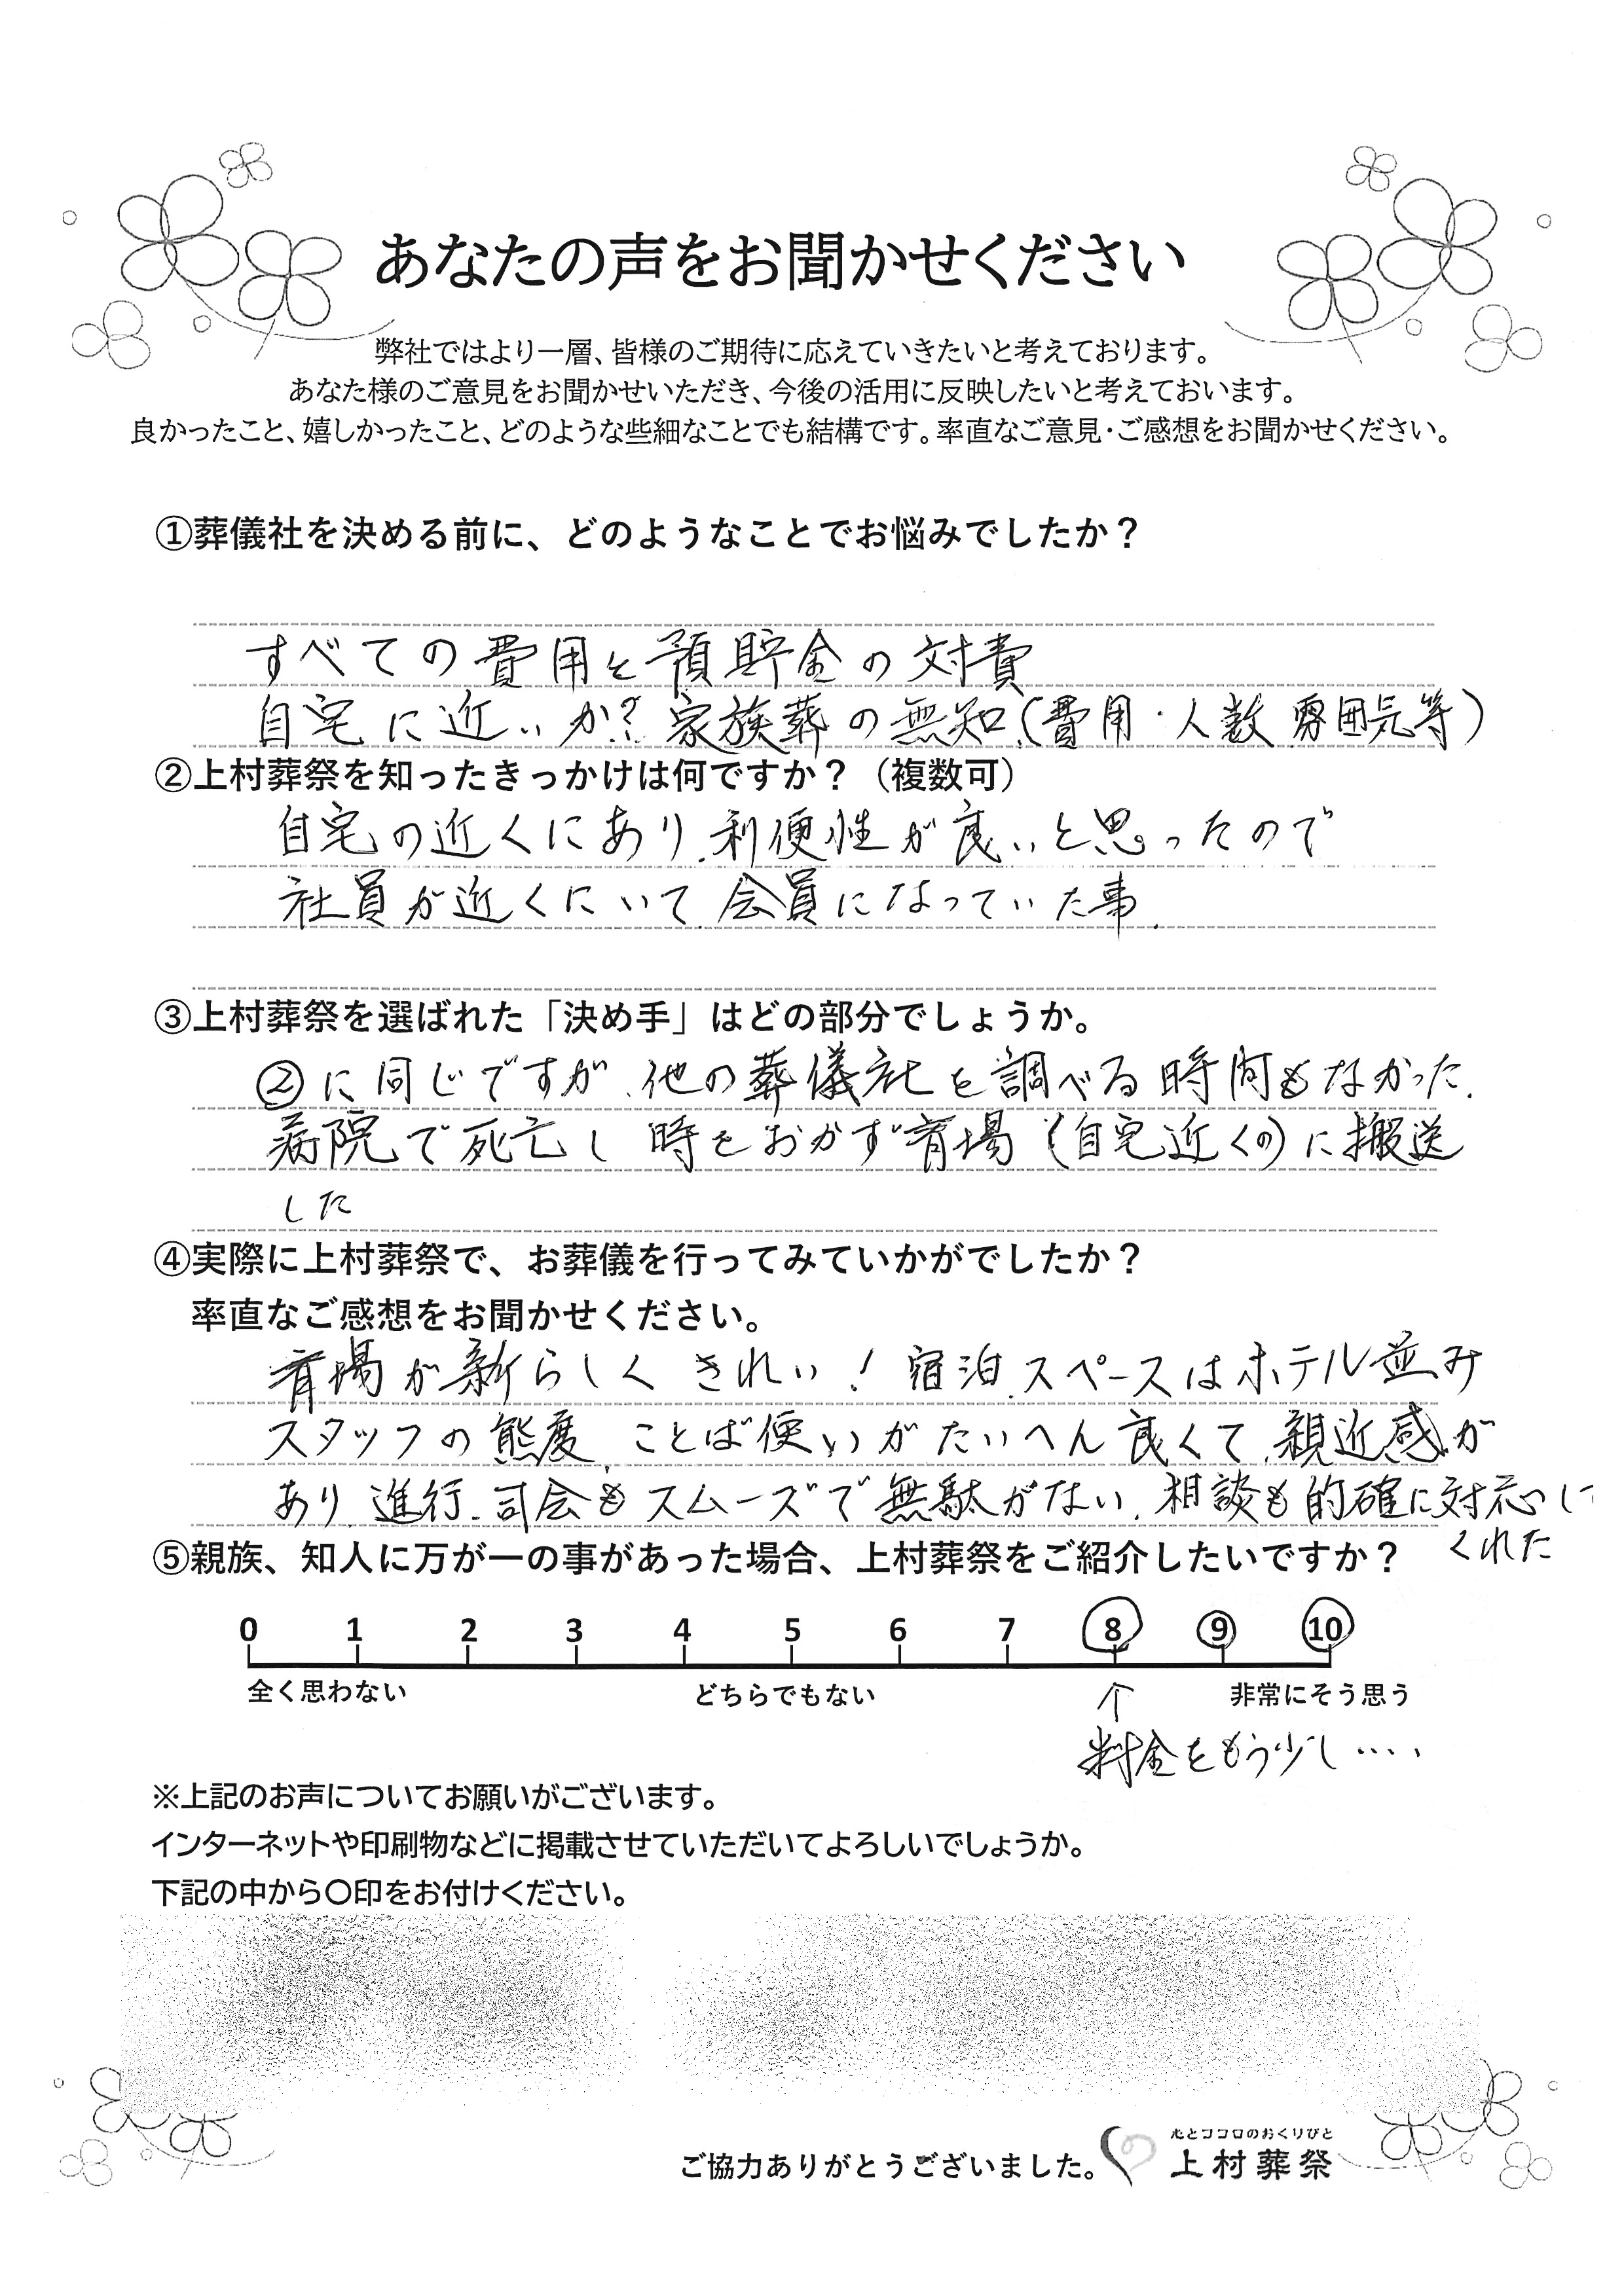 あなたの声をお聞かせください
弊社ではより一層、皆様のご期待に応えていきたいと考えております。
あなた様のご意見をお聞かせいただき、今後の活用に反映したいと考えておいます。
良かったこと、嬉しかったこと、どのような些細なことでも結構です。率直なご意見・ご感想をお聞かせください。
①葬儀社を決める前に、どのようなことでお悩みでしたか？
すべての費用と預貯金の対費
自宅に近いか？家族葬の無知（費用・人数 雰囲気等）
②上村葬祭を知ったきっかけは何ですか？（複数可）
自宅の近くにあり、利便性が良いと思ったので
社員が近くにいて、会員になっていた事.
③上村葬祭を選ばれた「決め手」はどの部分でしょうか。
②に同じですが、他の葬儀社を調べる時間もなかった.
病院で死亡し 時をおかず斎場（自宅近くの）に搬送
した
④実際に上村葬祭で、お葬儀を行ってみていかがでしたか？
率直なご感想をお聞かせください。
斎場が新らしく きれい！宿泊スペースはホテル並み
スタッフの態度、ことば使いがたいへん良くて、親近感が
あり、進行、司会もスムーズで無駄がない、相談も的確に対応して
くれた
⑤親族、知人に万が一の事があった場合、上村葬祭をご紹介したいですか？
0 1 2 3 4 5 6 7 8 9 10
全く思わない どちらでもない ↑ 非常にそう思う
料金をもう少し‥‥
※上記のお声についてお願いがございます。
インターネットや印刷物などに掲載させていただいてよろしいでしょうか。
下記の中から〇印をお付けください。
ご協力ありがとうございました。
心とココロのおくりびと
上村葬祭